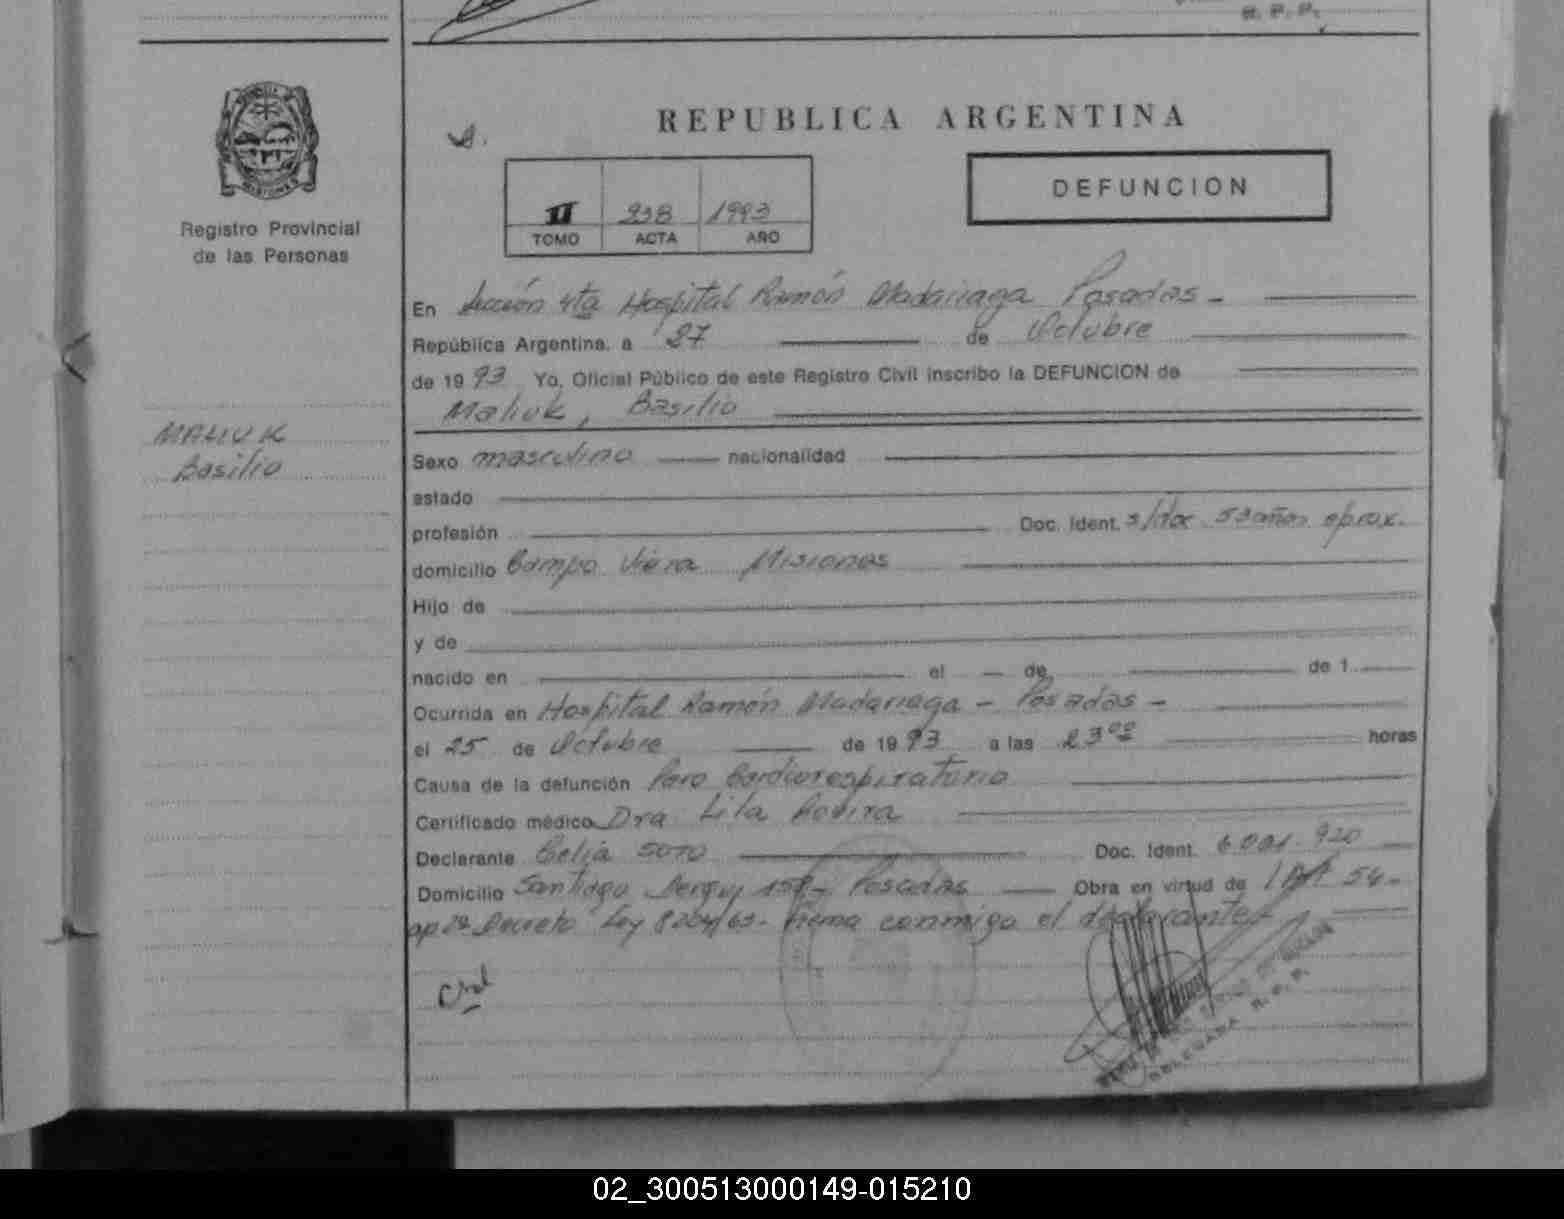 R. P. P.
REPUBLICA ARGENTINA
II 938 1993
TOMO ACTA AÑO
DEFUNCION
MISIONES
Registro Provincial
de las Personas
En Sección 4ta Hospital Ramón Madariaga Posadas -
República Argentina, a 27 de Octubre
de 1993 Yo, Oficial Público de este Registro Civil inscribo la DEFUNCION de
Maliuk, Basilio
MALIUK
Basilio
Sexo masculino nacionalidad
estado
profesión Doc. Ident. s/doc 53 años aprox.
domicilio Campo Viera Misiones
Hijo de
y de
nacido en el de de 1
Ocurrida en Hospital Ramón Madariaga - Posadas -
el 25 de Octubre de 1993 a las 23 00 horas
Causa de la defunción Paro Cardiorespiratorio
Certificado médico Dra Lila Rovira
Declarante Celia SOTO Doc. Ident. 6.001.920
Domicilio Santiago Derqui 158 - Posadas Obra en virtud de Art 54-
ap 2º Decreto Ley 8204/63- firma conmigo el declarante-
DELEGADA R. P. P.
02_300513000149-015210